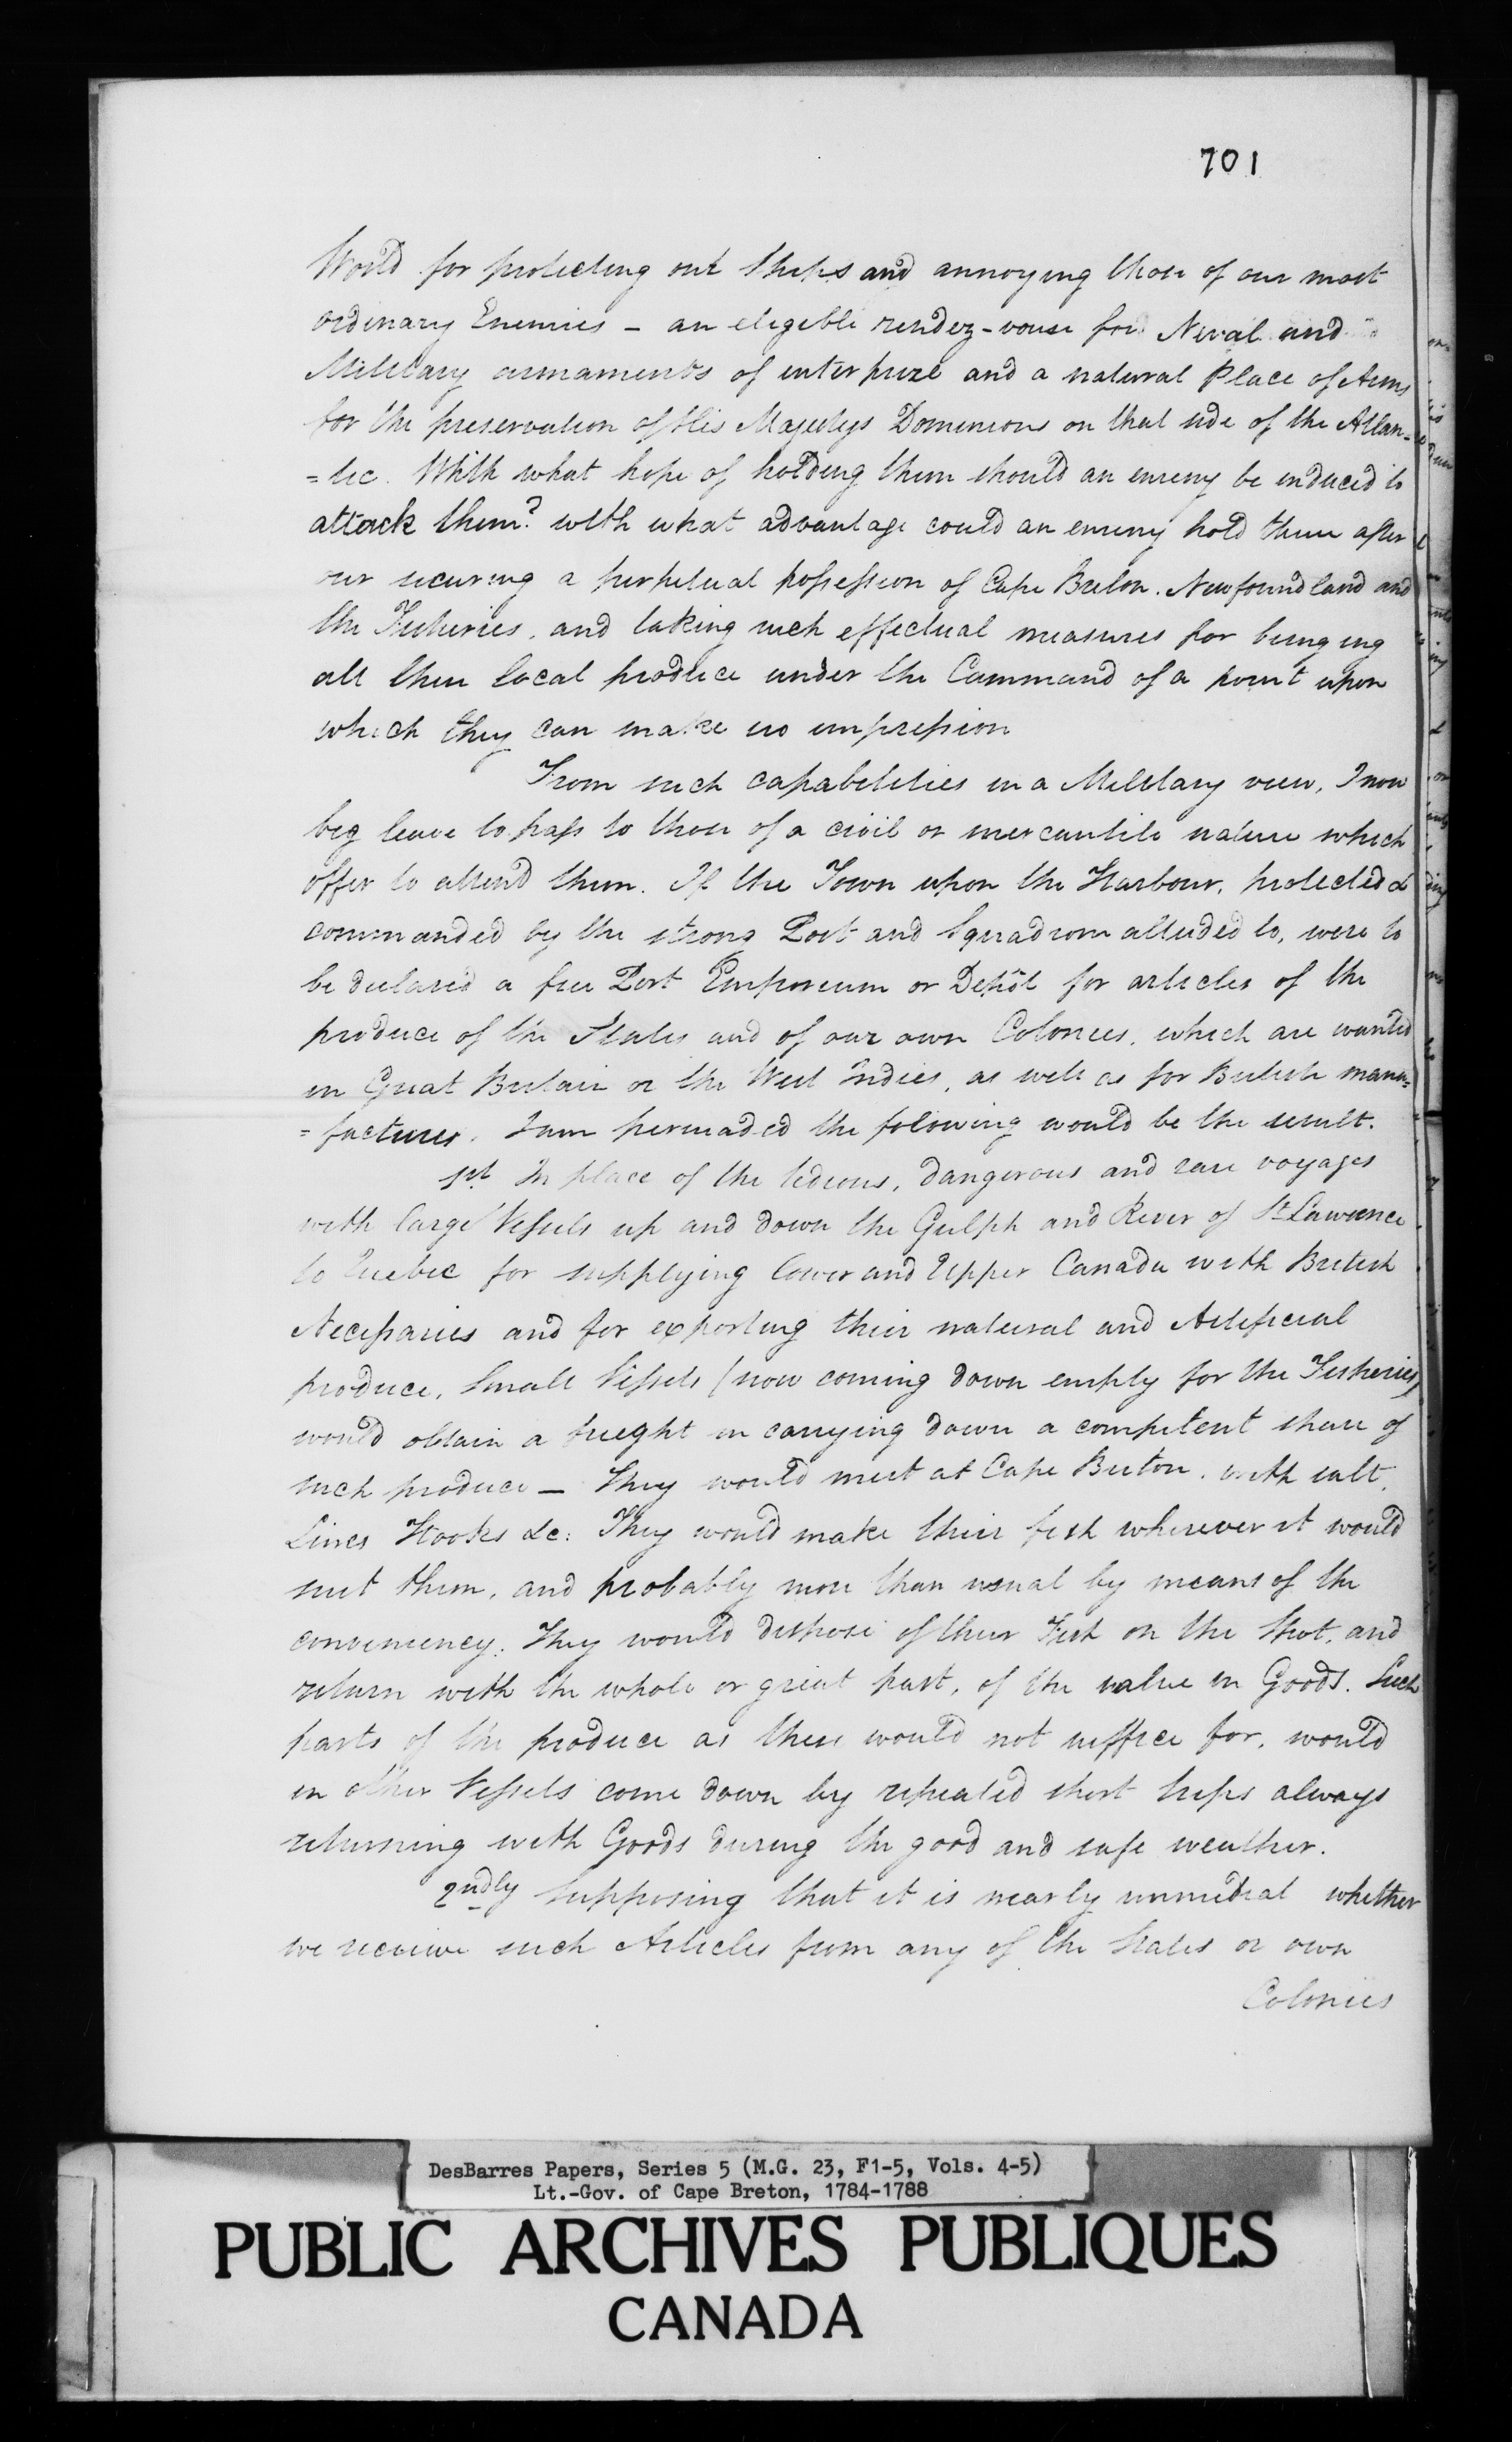 701
World for protecting our Ships and annoying those of our most
ordinary Enemies – an eligible rendez-vouse for Naval and
Military armaments of enterprize and a natural Place of Arms
for the preservation of His Majestys Dominions on that side of the Atlan-
=tic. With what hope of holding them should an enemy be induced to
attack them? with what advantage could an enemy hold them after
our securing a perpetual possession of Cape Breton. Newfoundland and
the Fisheries, and taking such effectual measures for bringing
all their local produce under the Command of a point upon
which they can make no impression
From such capabilities in a Military view, I now
beg leave to pass to those of a civil or mercantile nature which
offer to attend them. If the Town upon the Harbour, protected &
commanded by the strong Post and Squadron alluded to, were to
be declared a free Port Emporeum or Depôt for articles of the
produce of the States and of our own Colonies, which are wanted
in Great Britain or the West Indies, as well as for British manu=
=factures. I am persuaded the folowing would be the result.
1st In place of the tedious, dangerous and rare voyages
with large Vessels up and down the Gulph and River of St Lawrence
to Quebec for supplying lower and Upper Canada with British
Necessaries and for exporting their natural and Artificial
produce, Small Vessels (now coming down empty for the Fisheries)
would obtain a freight in carrying down a competent share of
such produce – They would meet at Cape Breton, with salt,
Lines Hooks &c: They would make their fish wherever it would
suit them, and probably more than usual by means of the
conveniency. They would dispose of their Fish on the Spot, and
return with the whole or great part, of the value in Goods. Such
parts of the produce as these would not suffice for, would
in other Vessels come down by repeated short trips always
returning with Goods during the good and safe weather.
2ndly Supposing that it is nearly immetral whether
we receive such Articles from any of the States or own
Colonies
DesBarres Papers, Series 5 (M.G. 23, F1-5, Vols. 4-5)
Lt.-Gov. of Cape Breton, 1784-1788
PUBLIC ARCHIVES PUBLIQUES
CANADA